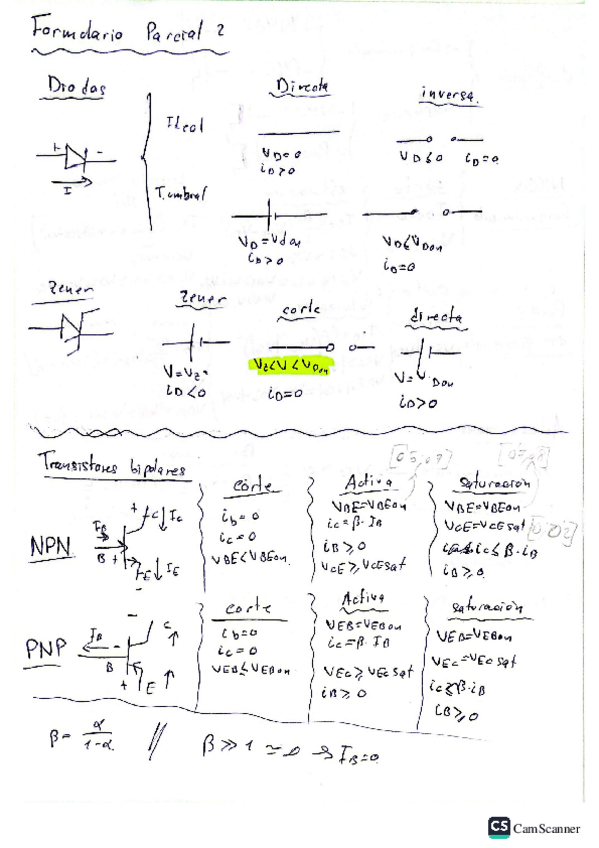 Formulario Parcial 2
Diodos
Directa
inversa
Ideal
VD=0
iD>0
VD≤0 iD=0
+ -
I
Tumbral
VD=Vdon
iD>0
VD≤VDon
iD=0
Zener
Zener
corte
directa
V=Vz
iD<0
Vz<V<VDon
iD=0
V=VDon
iD>0
Transistores bipolares
NPN
IB
B
+
C
IC
E
IE
corte
ib=0
ic=0
VBE<VBEon
Activa
VBE=VBEon
ic=β·IB
iB≥0
VCE≥VCEsat
saturación
VBE=VBEon
VCE=VCEsat
ic≤β·iB
iB≥0
PNP
IB
B
-
C
+
E
corte
ib=0
ic=0
VEB≤VEBon
Activa
VEB=VEBon
ic=β·IB
VEC≥VECsat
iB≥0
saturación
VEB=VEBon
VEC=VECsat
ic≤β·iB
iB≥0
β=α/1-α // β≫1 ≃ IB=0
CS CamScanner